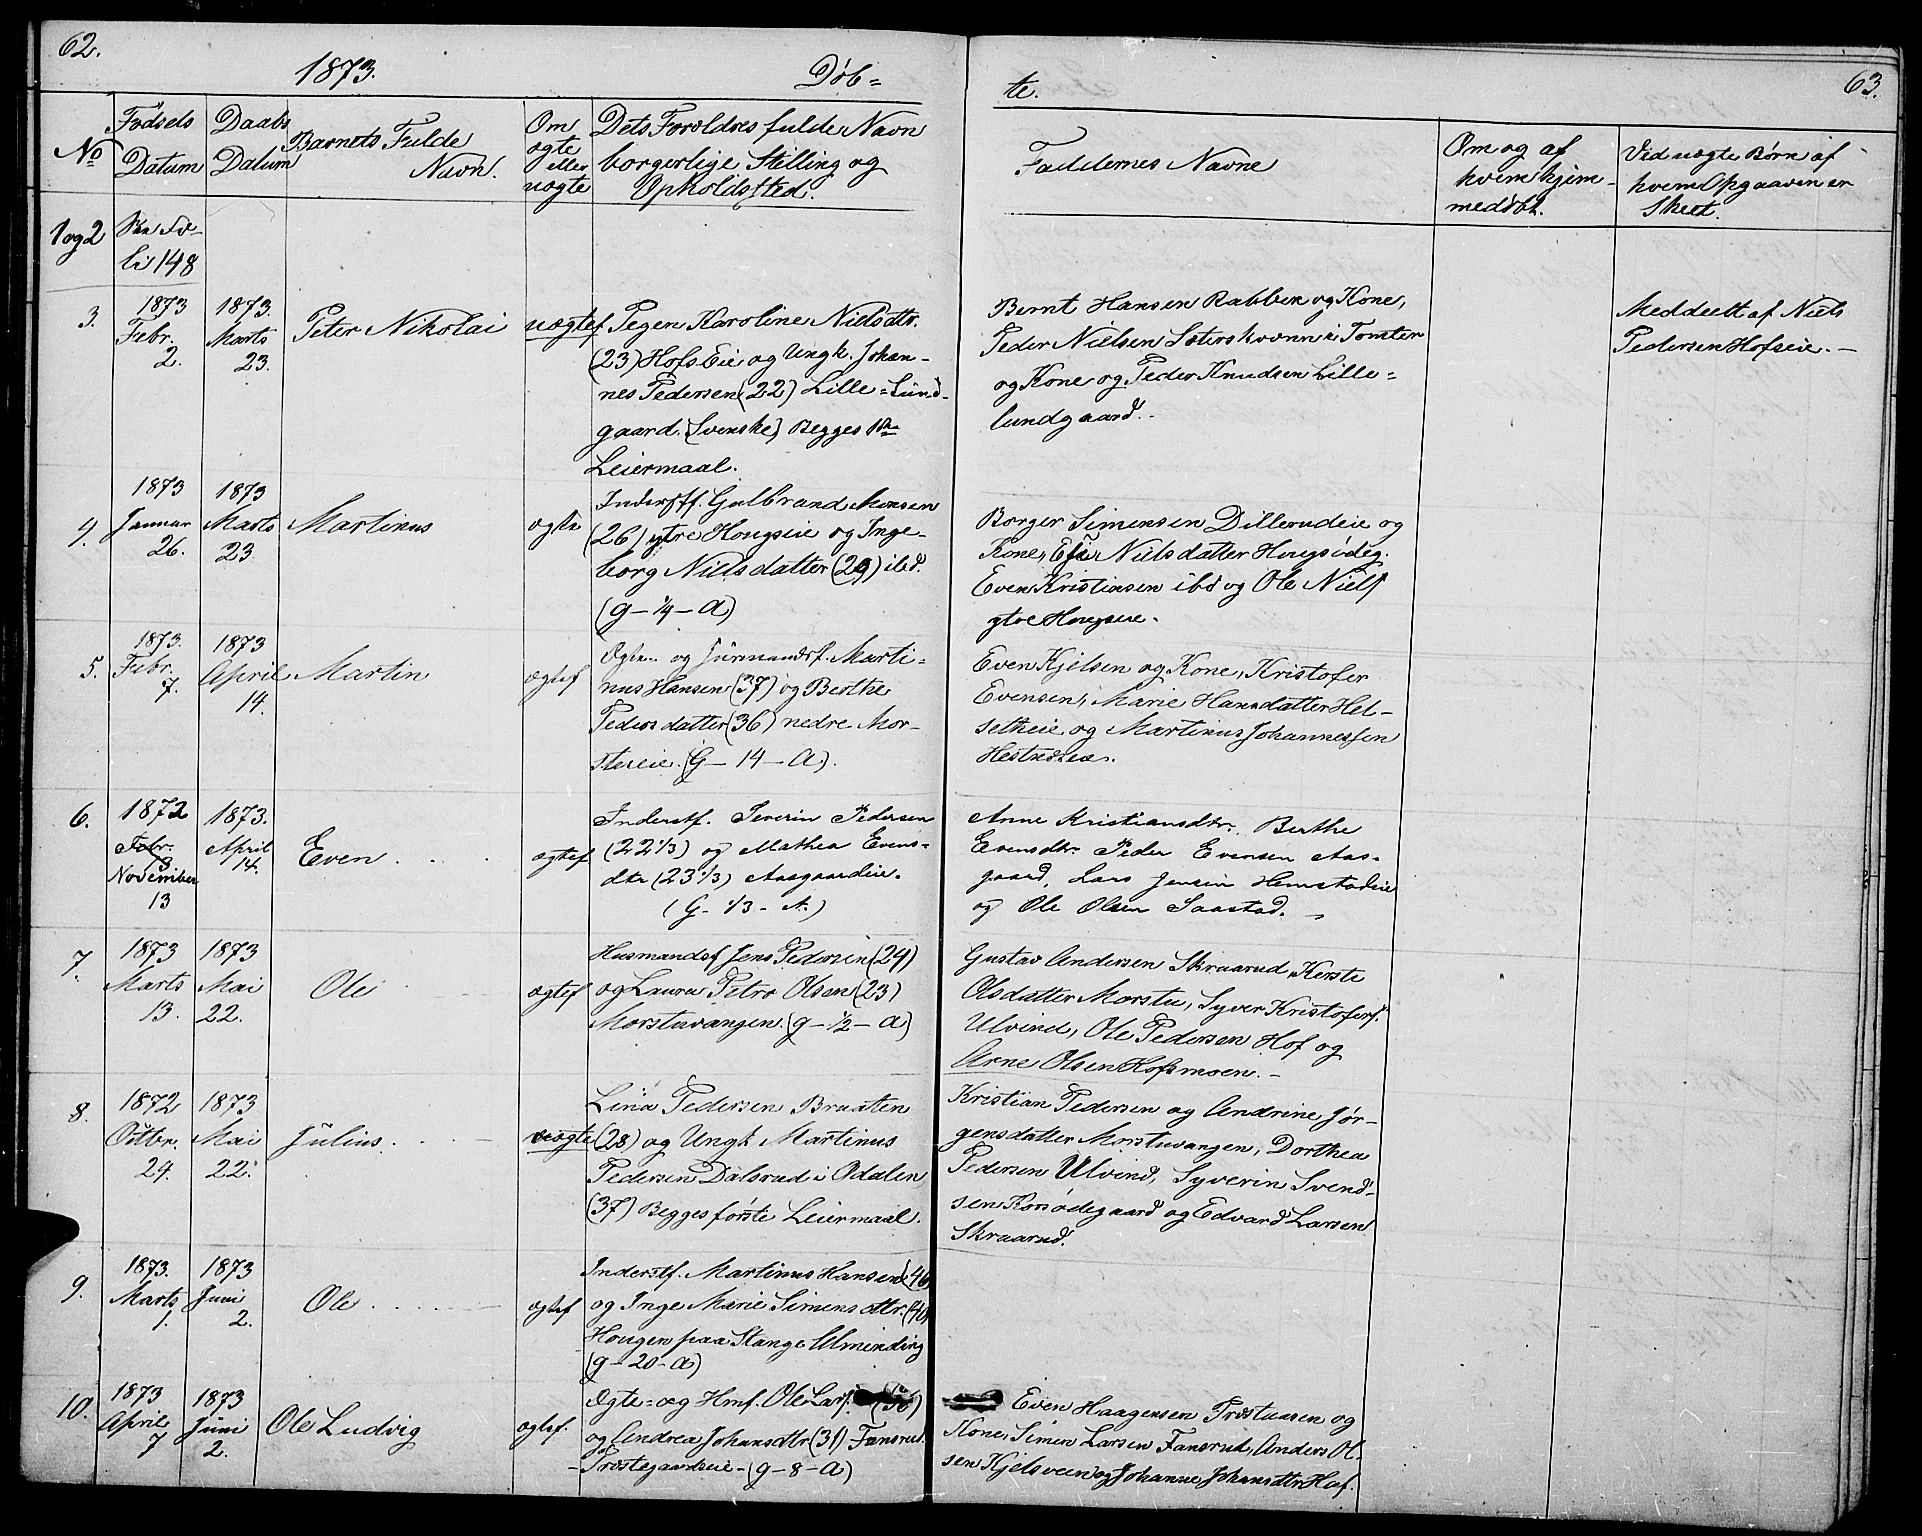 62.
1873.
Døb=
No
Fødsels
Datum
Daabs
Datum
Barnets Fulde
Navn.
Om
ægte
eller
uægte
Dets Forældres fulde Navn
borgerlige Stilling og
Opholdssted.
1 og 2
Fo-
lio 148
3.
1873
Febr.
2.
1873.
Marts
23.
Peter Nikolai
uægtef.
Pegen Karoline Nielsdtr.
(23) Hofs Eie og Ungk. Johan-
nes Pedersen (22) Lille=Lund-
gaard. (Svenske) Begges 1ste
Leiermaal.
4.
1873
Januar
26.
1873
Marts
23.
Martinus
ægte
Inderstf. Gulbrand Monsen
(26) ytre Hougseie og Inge-
borg Nielsdatter (29) ibd.
(g - 1/4 - a)
5.
1873.
Febr.
7.
1873
April
14.
Martin
ægtef
Ægte- og Huusmandsf. Marti=
nus Hansen (37) og Berthe
Pedersdatter (36) nedre Mor-
stueeie. (G - 14 - A).
6.
1872
Febr.
13
November
13
1873.
April
14.
Even.
ægtef.
Inderstf. Severin Pedersen
(22 1/3) og Mathea Evens-
dtr (23 1/3) Aasgaardeie.
(G - 1/3 - A.)
7.
1873
Marts
13.
1873
Mai
22.
Ole
ægtef
Husmandsf Jens Pedersen (24)
og Laura Petra Olsen (23)
Morstuvangen. (g - 1/2 - a)
8.
1872
Octbr.
24.
1873
Mai
22.
Julius.
uægte
Lina Pedersen Braaten
(28) og Ungk Martinus
Pedersen Dalsrud i Odalen
(37) Begges første Leiermaal.
9.
1873.
Marts
1.
1873
Juni
2.
Ole
ægtef
Inderstf. Martinus Hansen (46)
og Inge Marie Simensdtr. (40)
Hougen paa Stange Alminding
(g - 20 - a)
10.
1873
April
7
1873
Juni
2.
Ole Ludvig
ægtef.
Ægte= og Hmf. Ole Larsf. (36)
og Andrea Johansdtr (31) Fansrud
Frøstegaardseie - (g - 8 - a)
te.
63.
Faddernes Navne
Om og af
hvem hjem-
medøbt.
Ved uægte Børn af
hvem Opgaaven er
Skeet.
Bernt Hansen Rabben og Kone,
Peder Nielsen Sæterskvænn i Tomter
og Kone og Peder Knudsen Lille=
lundgaard.
Meddeelt af Niels
Pedersen Hofseie. -
Borger Simensen Dillerudeie og
Kone, Nielsdatter Hougsødeg.
Even Kristiansen ibd og Ole Niels
ytre Hougseie.
Even Kjelsen og Kone, Kristofer
Evensen, Marie Hansdatter Hel-
setheie og Martinus Johannessen
Anne Kristiansdtr. Berthe
Evensdtr. Peder Evensen Aas-
gaard, Lars Jensen Hemstadeie
og Ole Olsen Saastad.
Gustav Andersen Skraarud, Kerste
Olsdatter Morstu, Syver Kristofers.
Ulvind, Ole Pedersen Hof og
Arne Olsen Hofsmoen. -
Kristian Pedersen og Andrine Jør-
gensdatter Morstuvangen, Dorthea
Pedersen Ulvind, Syverin Svend-
sen Korsødegaard og Edvard Larsen
Skraarud.
Even Haagensen Frøstuasen og
Kone, Simen Larsen Fansrud, Anders Ol-
sen Kjelsveen og Johanne Johansdtr Hof.